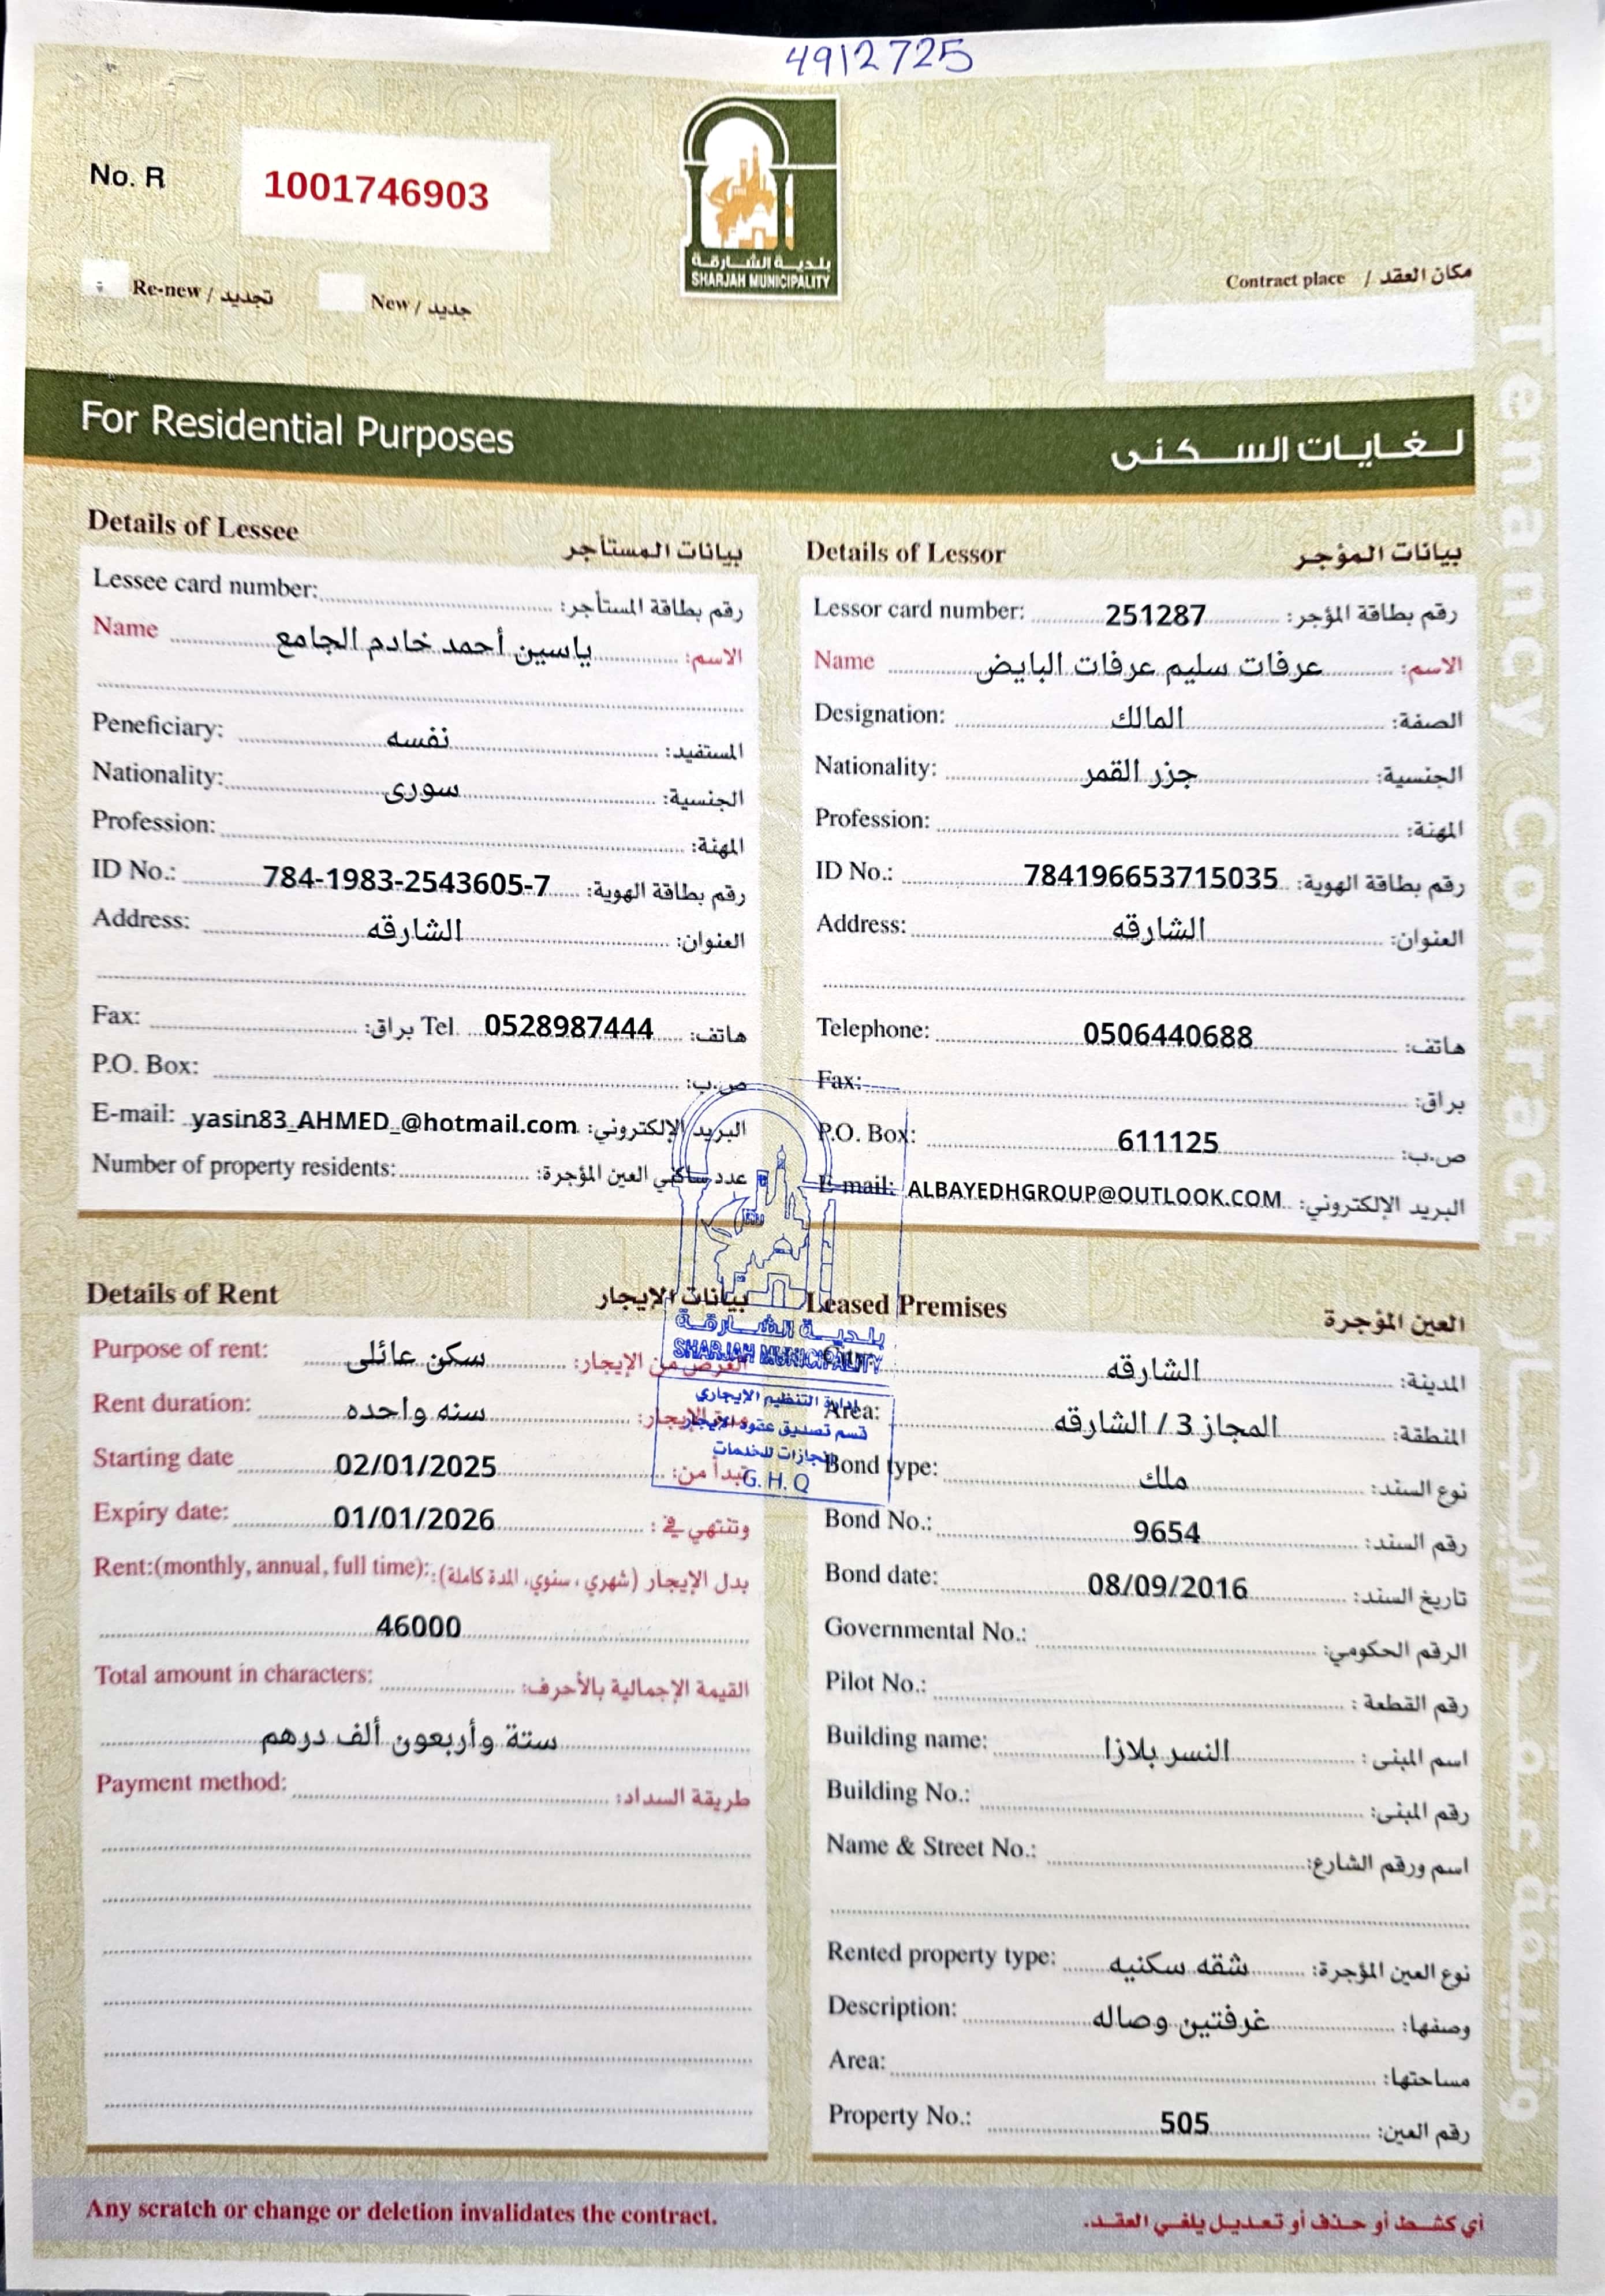 4912725
No. R 1001746903
بلدية الشارقة
SHARJAH MUNICIPALITY
Re-new / تجديد New / جديد
Contract place / مكان العقد
For Residential Purposes لغايات السكنى
Tenancy Contract
Details of Lessee بيانات المستأجر
Lessee card number: رقم بطاقة المستأجر:
Name ياسين أحمد خادم الجامع الاسم:
Peneficiary: نفسه المستفيد:
Nationality: سورى الجنسية:
Profession: المهنة:
ID No.: 784-1983-2543605-7 رقم بطاقة الهوية:
Address: الشارقه العنوان:
Fax: براق: Tel. 0528987444 هاتف:
P.O. Box: ص.ب:
E-mail: yasin83_AHMED_@hotmail.com البريد الإلكتروني:
Number of property residents: عدد ساكني العين المؤجرة:
Details of Lessor بيانات المؤجر
Lessor card number: 251287 رقم بطاقة المؤجر:
Name عرفات سليم عرفات البايض الاسم:
Designation: المالك الصفة:
Nationality: جزر القمر الجنسية:
Profession: المهنة:
ID No.: 784196653715035 رقم بطاقة الهوية:
Address: الشارقه العنوان:
Telephone: 0506440688 هاتف:
Fax: براق:
P.O. Box: 611125 ص.ب:
E-mail: ALBAYEDHGROUP@OUTLOOK.COM البريد الإلكتروني:
بلدية الشارقة
SHARJAH MUNICIPALITY
إدارة التنظيم الايجاري
قسم تصديق عقود الايجار
انجازات للخدمات
G. H. Q
Details of Rent بيانات الإيجار
Purpose of rent: سكن عائلى الغرض من الإيجار:
Rent duration: سنه واحده مدة الإيجار:
Starting date 02/01/2025 تبدأ من:
Expiry date: 01/01/2026 وتنتهي في :
Rent:(monthly, annual, full time): بدل الإيجار (شهري ، سنوي، المدة كاملة):
46000
Total amount in characters: القيمة الإجمالية بالأحرف:
ستة وأربعون ألف درهم
Payment method: طريقة السداد:
Leased Premises العين المؤجرة
City: الشارقه المدينة:
Area: المجاز 3 / الشارقه المنطقة:
Bond type: ملك نوع السند:
Bond No.: 9654 رقم السند:
Bond date: 08/09/2016 تاريخ السند:
Governmental No.: الرقم الحكومي:
Pilot No.: رقم القطعة :
Building name: النسر بلازا اسم المبنى :
Building No.: رقم المبنى:
Name & Street No.: اسم ورقم الشارع:
Rented property type: شقه سكنيه نوع العين المؤجرة:
Description: غرفتين وصاله وصفها:
Area: مساحتها:
Property No.: 505 رقم العين:
Any scratch or change or deletion invalidates the contract. أي كشط أو حذف أو تعديل يلغي العقد.